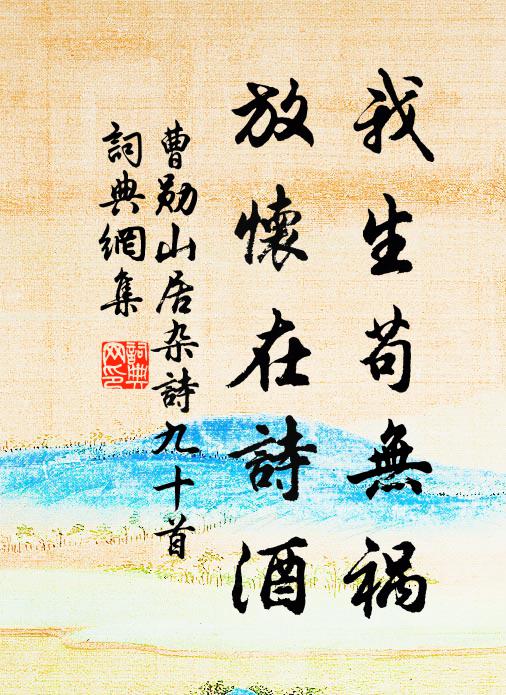 我生苟無禍
放懷在詩酒
曹勛山居杂詩九十首
詞典網集
詞典
网印